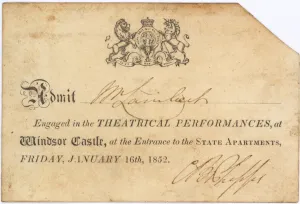 Admit Mr
Engaged in the THEATRICAL PERFORMANCES, at
Windsor Castle, at the Entrance to the STATE APARTMENTS,
FRIDAY, JANUARY 16th, 1852.